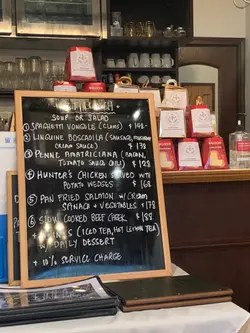 SOUP OR SALAD
① SPAGHETTI VONGOLE (CLAMS) $148-
② LINGUINE BOSCAOLIA (SAUSAGE, MUSHROOM
CREAM SAUCE) $138
③ PENNE AMATRICIANA (BACON,
TOMATO SAUCE, CHILI) $128
④ HUNTER'S CHICKEN SERVED WITH
POTATO WEDGES $168
⑤ PAN FRIED SALMON W/ CREAM
SPINACH + VEGETABLES $178
⑥ SLOW COOKED BEEF CHEEK $188
(ICED TEA, HOT LEMON TEA)
DAILY DESSERT
+ 10% SERVICE CHARGE